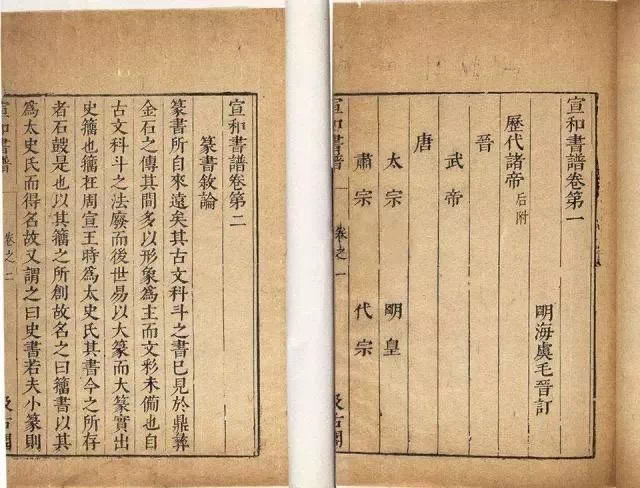 宣和書譜卷第一
明海虞毛晉訂
歷代諸帝 后附
晉
武帝
唐
太宗 明皇
肅宗 代宗
宣和書譜 卷之一 汲古閣
宣和書譜卷第二
篆書敘論
篆書所自來遠矣其古文科斗之書已見於鼎彝
金石之傳其間多以形象爲主而文彩未俻也自
古文科斗之法廢而後世易以大篆而大篆實出
史籀也籀在周宣王時爲太史氏其書今之所存
者石鼓是也以其籀之所創故名之曰籀書以其
爲太史氏而得名故又謂之曰史書若夫小篆則
宣和書譜 卷之二 汲古閣